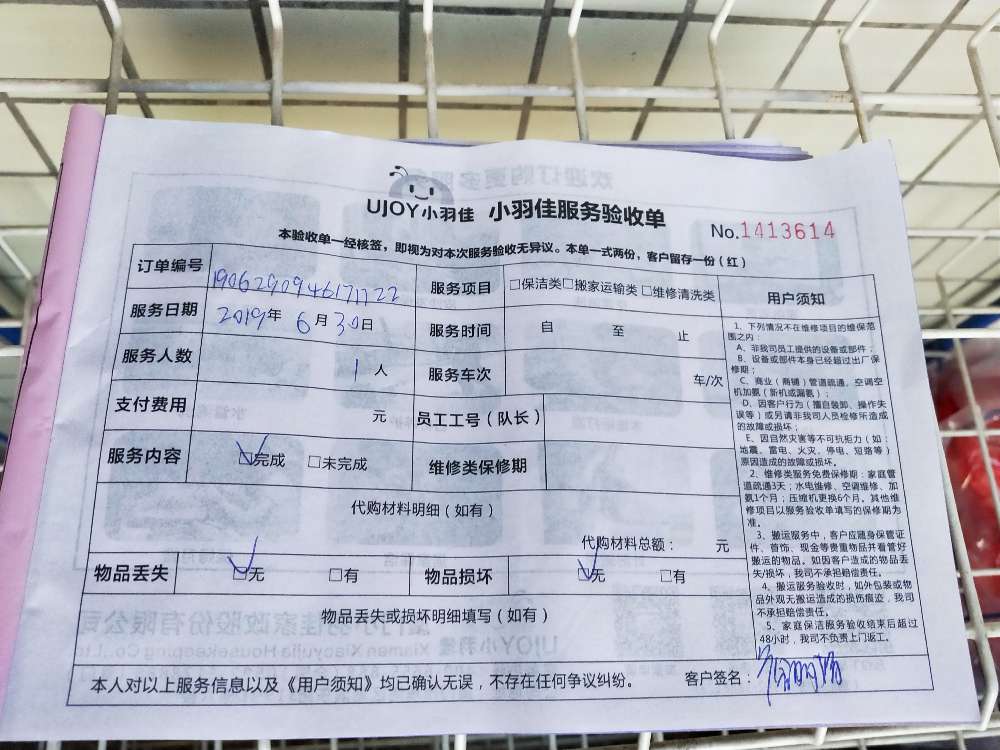 UJOY小羽佳 小羽佳服务验收单
No.1413614
本验收单一经核签，即视为对本次服务验收无异议。本单一式两份，客户留存一份（红）
订单编号 19062909461711722 服务项目 □保洁类□搬家运输类□维修清洗类
服务日期 2019年6月30日 服务时间 自 至 止
服务人数 1人 服务车次 车/次
支付费用 元 员工工号（队长）
服务内容 ☑完成 □未完成 维修类保修期
代购材料明细（如有）
代购材料总额： 元
物品丢失 ☑无 □有 物品损坏 ☑无 □有
物品丢失或损坏明细填写（如有）
本人对以上服务信息以及《用户须知》均已确认无误，不存在任何争议纠纷。 客户签名：
用户须知
1、下列情况不在维修项目的维保范
围之内：
A、非我司员工提供的设备或部件；
B、设备或部件本身已经超过出厂保
修期；
C、商业（商铺）管道疏通，空调空
机加氨（新机或漏氨）；
D、因客户行为（擅自装卸、操作失
误等）或另请非我司人员检修所造成
的故障或损坏；
E、因自然灾害等不可抗拒力（如：
地震、雷电、火灾、停电、短路等）
原因造成的故障或损坏。
2、维修类服务免费保修期：家庭管
道疏通3天；水电维修、空调维修、加
氨1个月；压缩机更换6个月。其他维
修项目以服务验收单填写的保修期为
准。
3、搬运服务中，客户应随身保管证
件、首饰、现金等贵重物品并看管好
搬运的物品。如因客户造成的物品丢
失/损坏，我司不承担赔偿责任。
4、搬运服务验收时，如外包装或物
品外观无搬运造成的损伤痕迹，我司
不承担赔偿责任。
5、家庭保洁服务验收结束后超过
48小时，我司不负责上门返工。